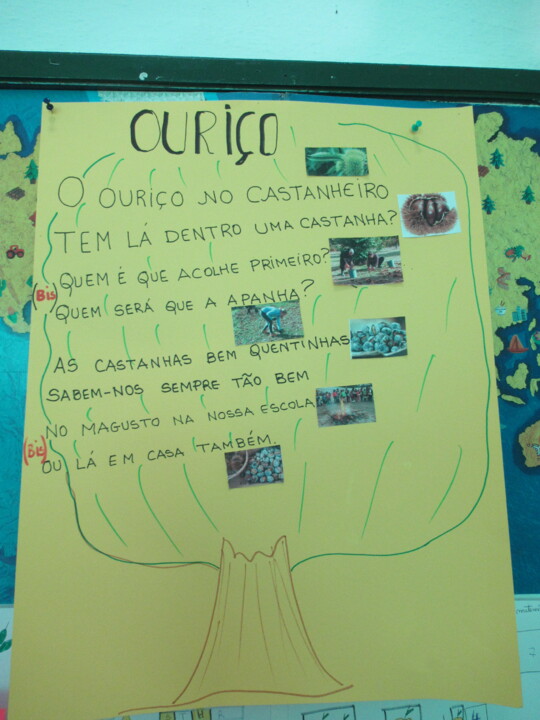 OURIÇO
O OURIÇO NO CASTANHEIRO
TEM LÁ DENTRO UMA CASTANHA?
QUEM É QUE ACOLHE PRIMEIRO?
(Bis) QUEM SERÁ QUE A APANHA?
AS CASTANHAS BEM QUENTINHAS
SABEM-NOS SEMPRE TÃO BEM
NO MAGUSTO NA NOSSA ESCOLA
(Bis) OU LÁ EM CASA TAMBÉM.